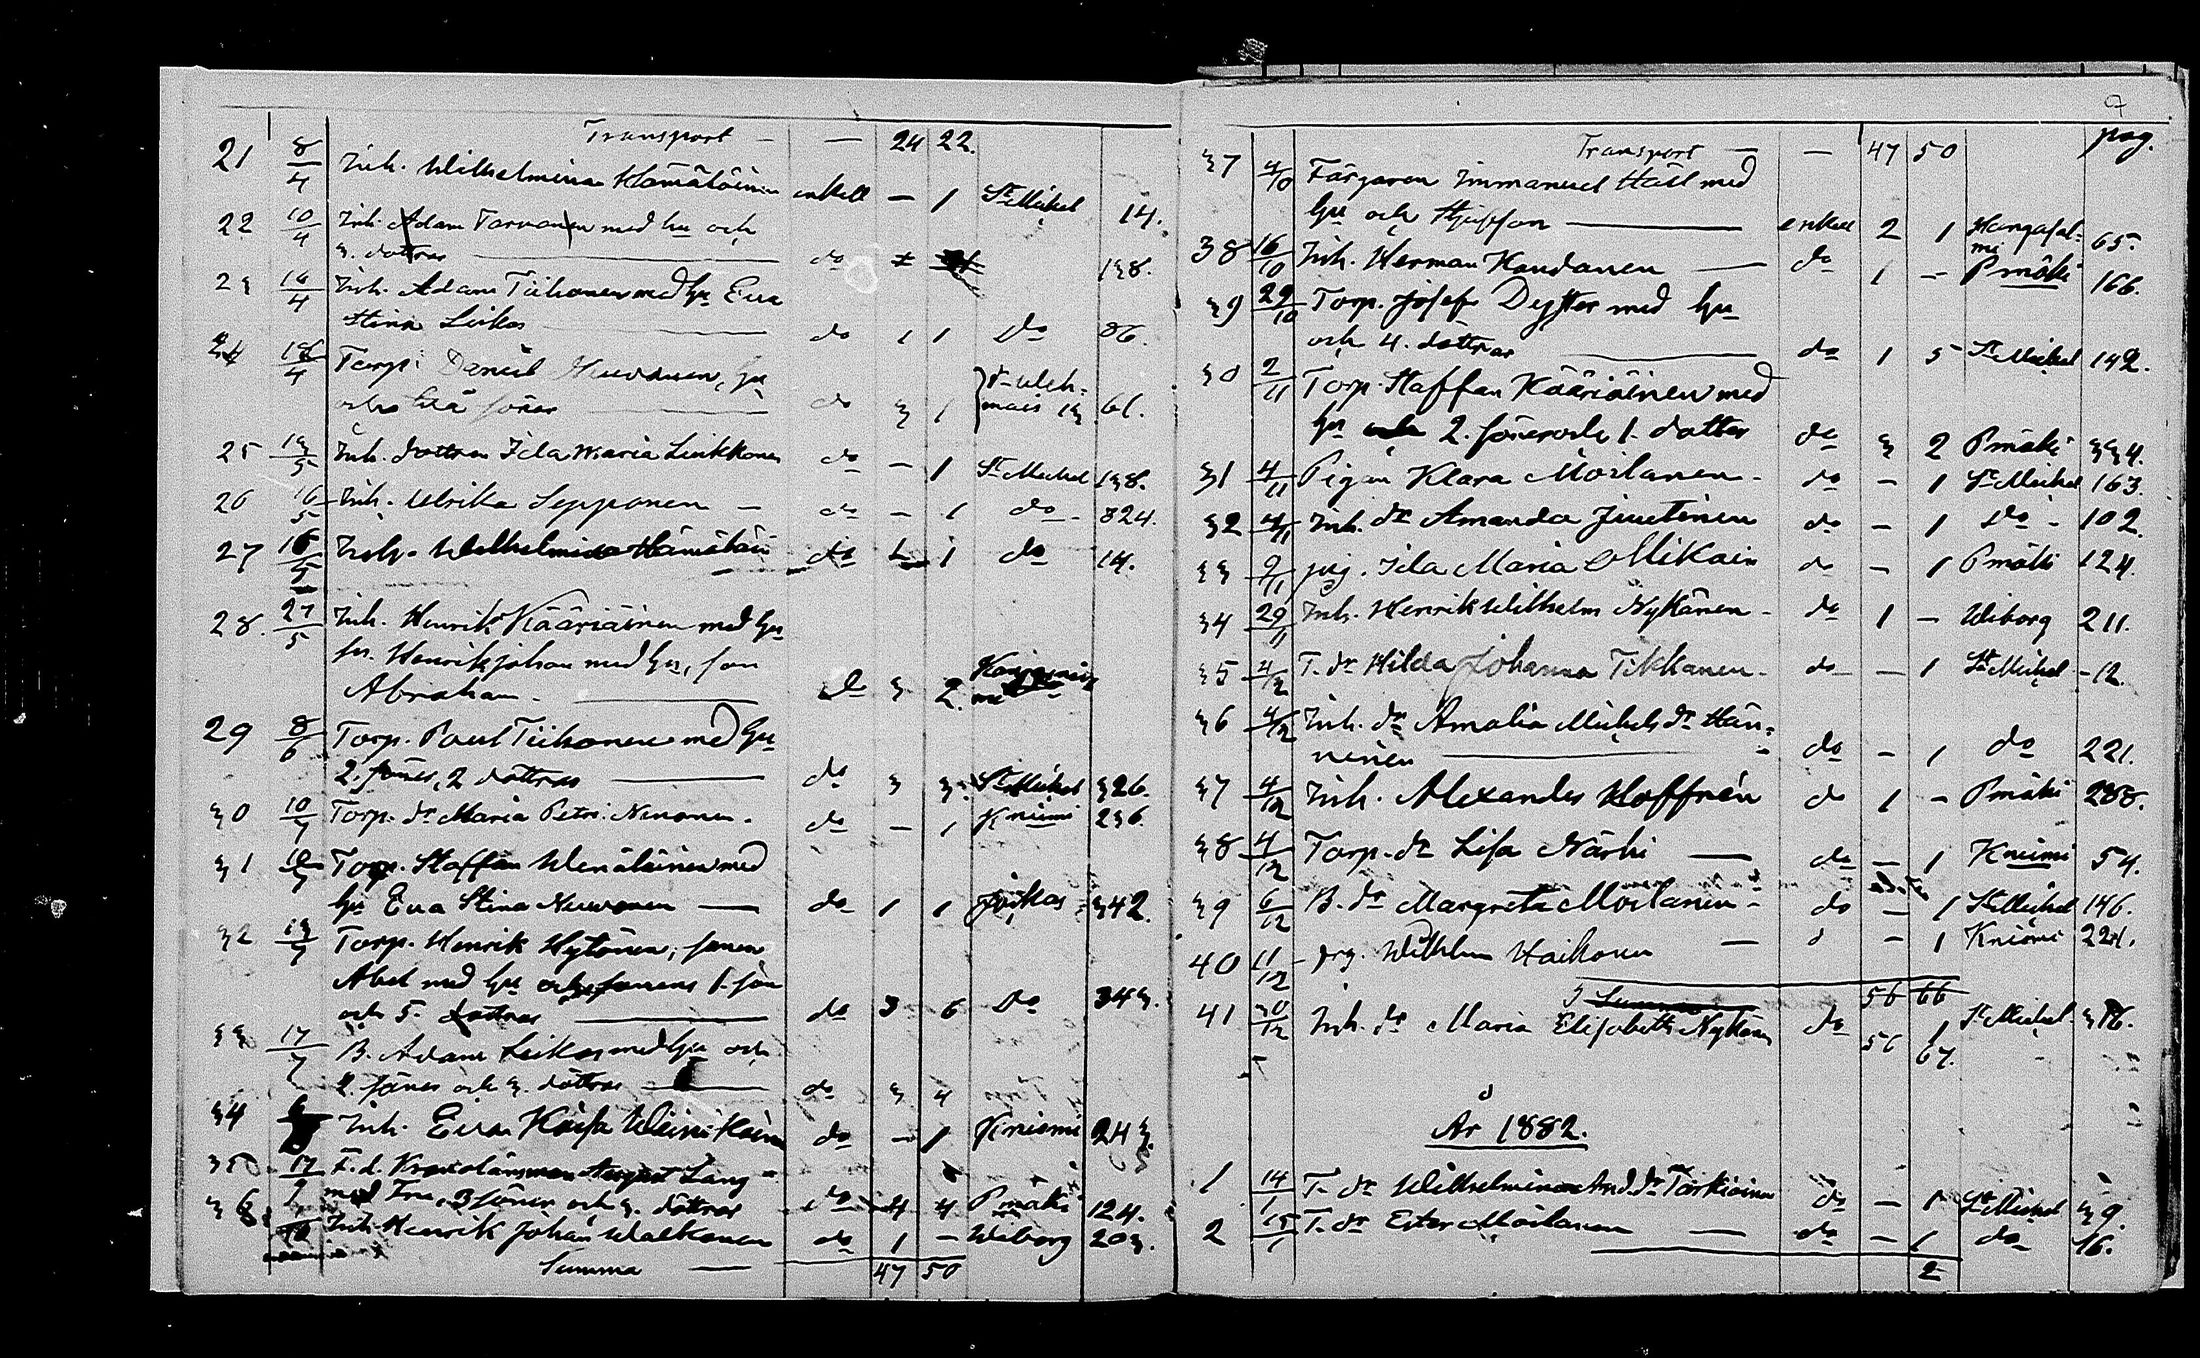 Transport — — 24 22.
21 8/4 Inh. Wilhelmina Hämäläinen enkell — 1 St Michel 14.
22 10/4 Inh. Adam Tarvonen med hu och
3. dottrar — do 138.
23 14/4 Inh. Adam Tiihonen med hu Eva
Stina Leikas — do 1 1 Do 86.
24 18/4 Torp. Daniel Neuvonen, hu
och två söner — do 3 1 61.
25 13/5 Inh. dottren Ida Maria Liukkonen do — 1 St Michel 138.
26 16/5 Inh. Ulrika Sepponen — do — 1 do 824.
27 16/5 Inh. Wilhelmina Hämäläin do 1 do 14.
28. 27/5 Inh. Henrik Kääriäinen med hu
sn. Henrik Johan med hu, son
Abraham — do 3 2.
29 8/6 Torp. Paul Tiihonen med hu
2. söner, 2 döttrar — do 3 3. St Michel 326.
30 10/7 Torp. dr Maria Petri. Ninonen. do — 1 Kniemi 236.
31 10/7 Torp. Staffan Wenäläinen med
hu Eva Stina Neuvonen — do 1 1 Joikas 342.
32 13/7 Torp. Henrik Hytönen, sonen
Abel med hu och sonens 1. son
och 5. dottrar — do 3 6 Do 343.
33 17/7 B. Adam Leikas med hu och
2. söner och 3. döttrar — do 3 4
34 Inh. Eva Kaisa Weini Kain do — 1 Kniemi 243.
35 17 F. d. Kronolänsman August Lang
med Fru, 3 söner och 3. döttrar do 4 4 Pmäki 124.
36 Inh. Henrik Johan Walkonen do 1 — Wiborg 203.
Summa — 47 50
pag.
Transport — — 47 50
37 4/10 Färgaren Immanuel Häll med
hu och Styfson — enkell 2 1 Kangasal-
mi 65.
38 16/10 Inh. Herman Kaudanen — do 1 — Pmäki 166.
39 29/10 Torp. Josef Deyster med hu
och 4. döttrar — do 1 5 St Michel 142.
30 2/11 Torp. Staffan Kääriäinen med
hu 2. söner och 1. dotter do 3 2 Pmäki 334.
31 4/11 Pigan Klara Moilanen — do — 1 St Michel 163.
32 4/11 Inh. dr Amanda Juutinen do — 1 Do 102.
33 9/11 pig. Ida Maria Mikain do — 1 Pmäki 124.
34 29/11 Inh. Henrik Wilhelm Nykänen — do 1 — Wiborg 211.
35 4/12 T. dr Hilda Johanna Tikkanen — do — 1 St Michel 12.
36 4/12 Inh. dr Amalia Michels dr Hän-
ninen — do — 1 do 221.
37 4/12 Inh. Alexander Hoffrén do 1 — Pmäki 288.
38 4/12 Torp. dr Lisa Närhi — do — 1 Kniemi 54.
39 6/12 B. dr Margreta Moilanen — do — 1 St Michel 146.
40 11/12 drg. Wilhelm Haikonen — d — 1 Kniemi 221.
Summa 56 66
41 30/12 Inh. dr Maria Elisabeth Nykänen do 1 St Michel 316.
56 67.
År 1882.
1 14/1 T. dr Wilhelmina And. dr Tarkiainen do — 1 St Michel 39.
2 15/1 T. dr Ester Moilanen — do — 1 do 16.
2